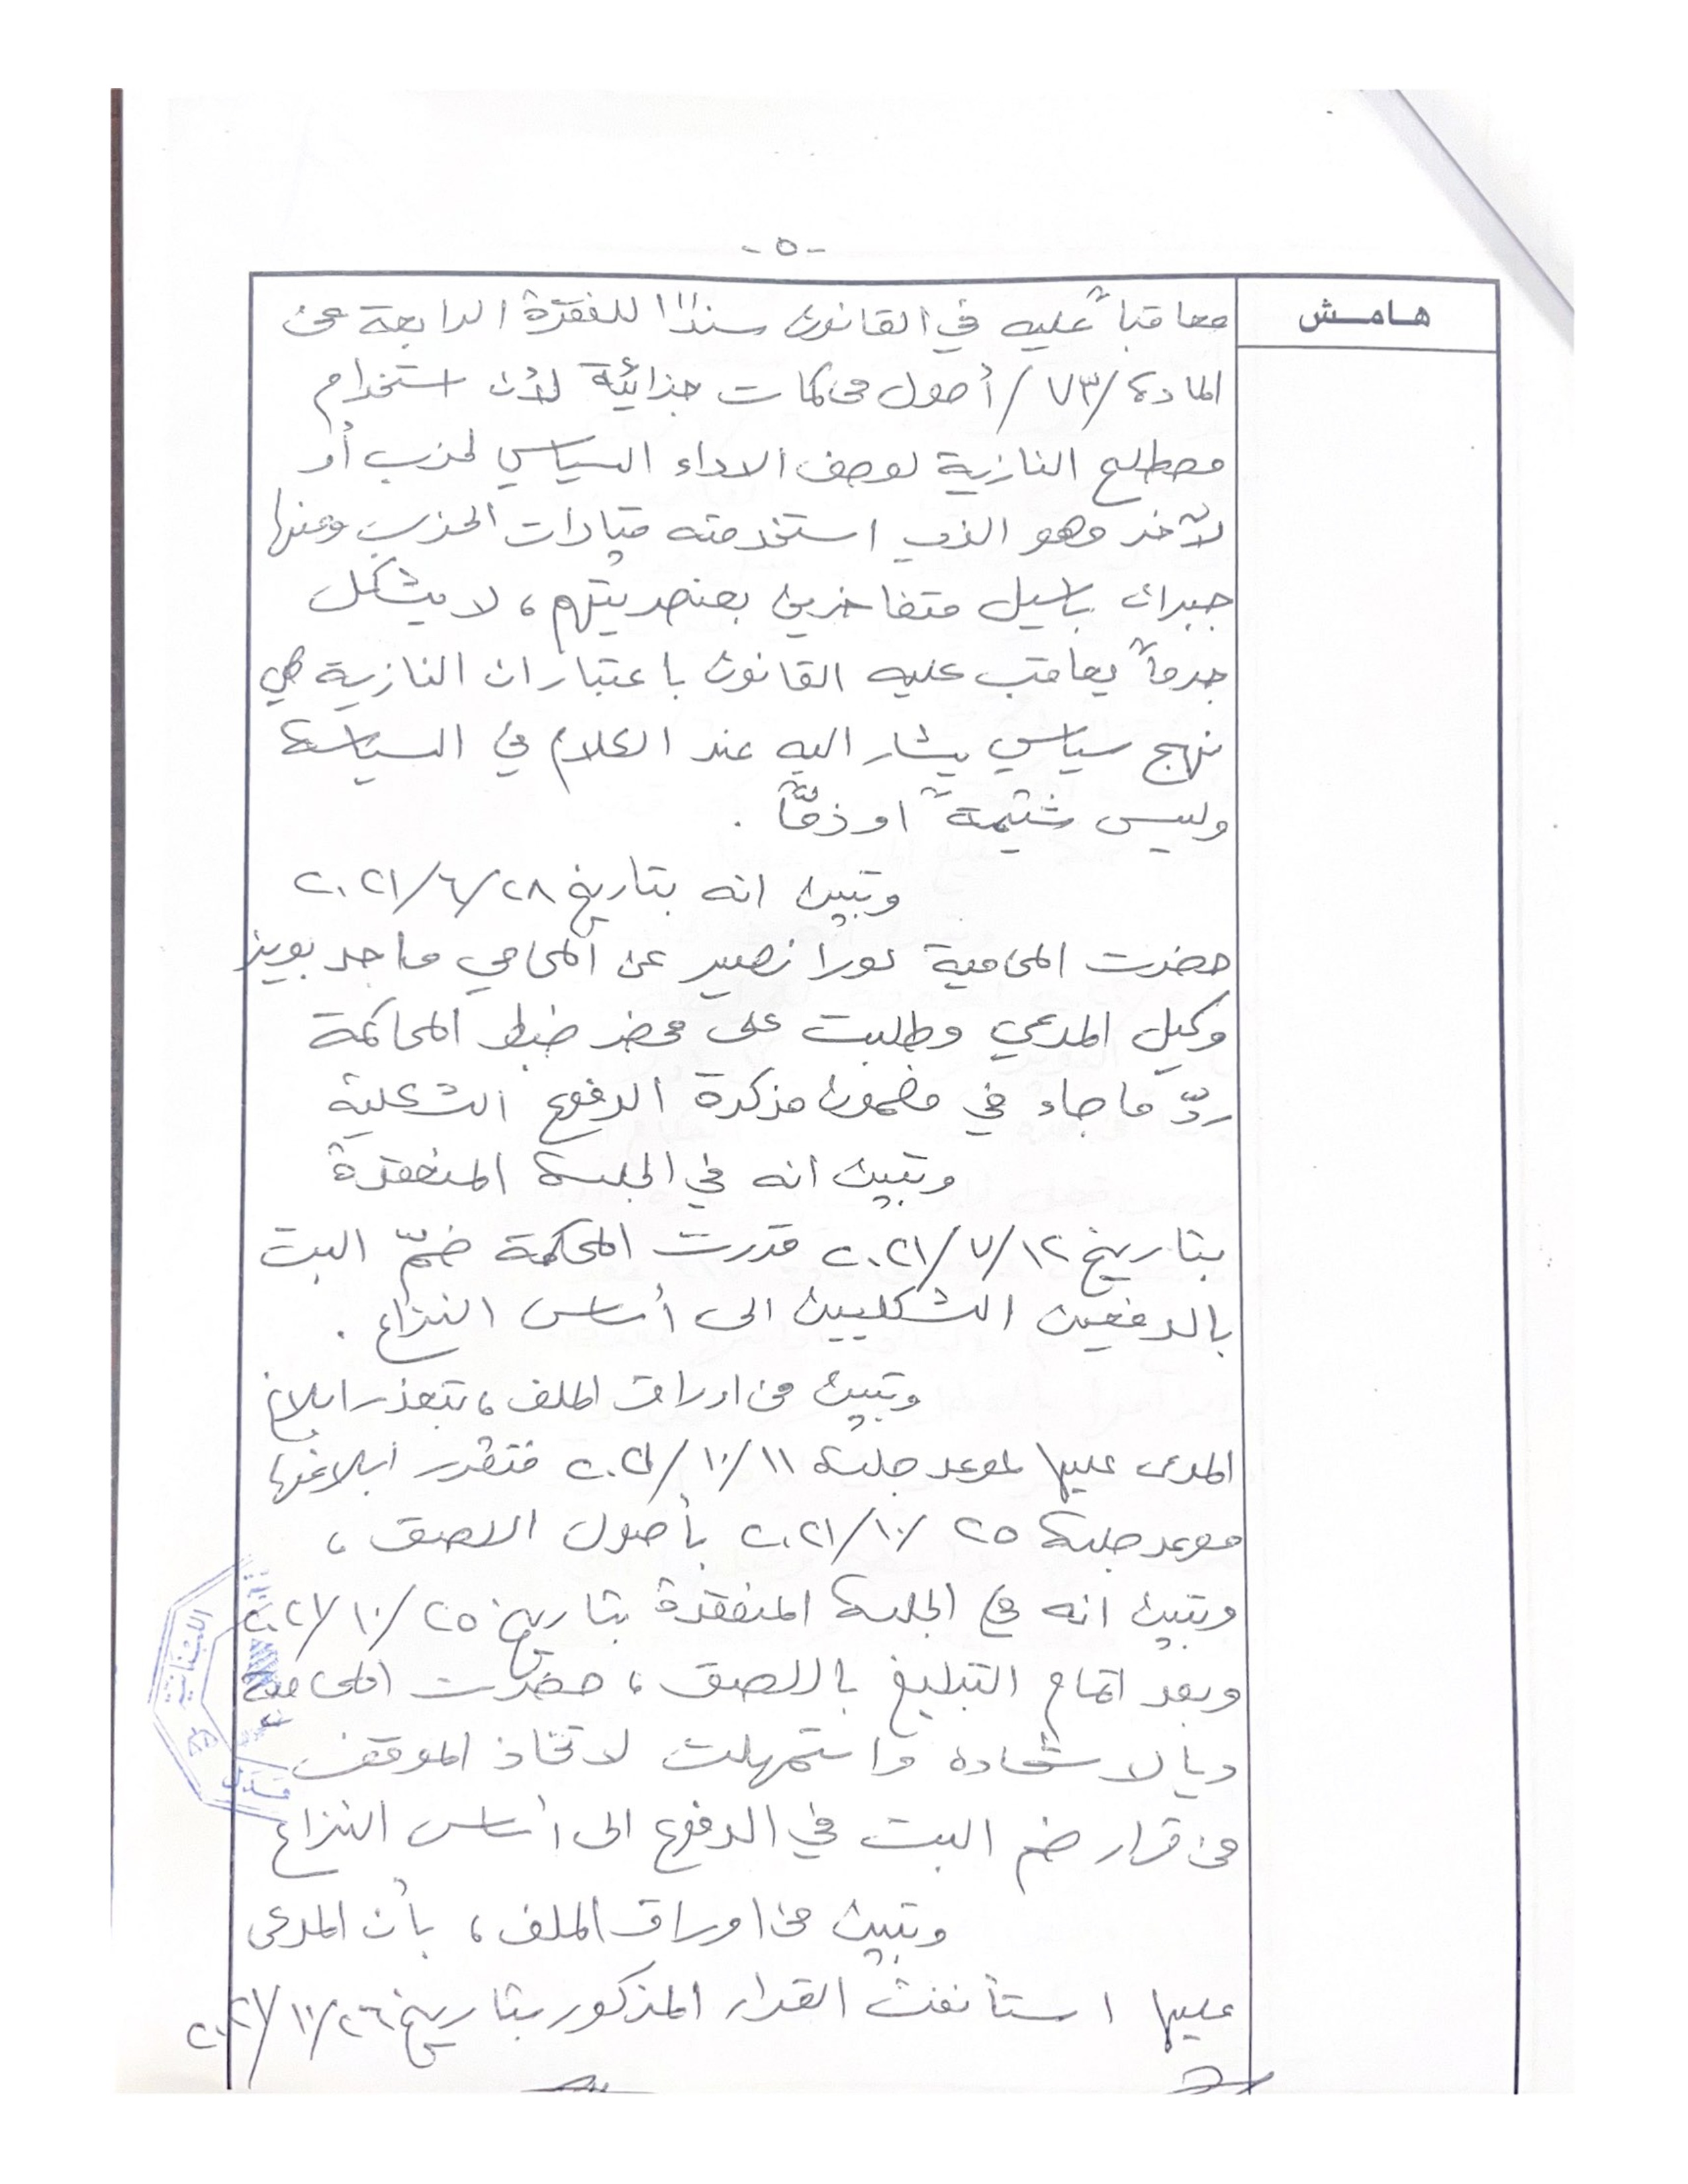 -٥-
هامش
معاقباً عليه في القانون سنداً للفقرة الرابعة من
المادة /٧٣/ أصول محاكمات جزائية لأن استخدام
مصطلح النازية لوصف الاداء السياسي لحزب أو
لآخر وهو الذي استخدمته قيادات الحزب ومنها
جبران باسيل متفاخرين بعنصريتهم، لا يشكل
جرماً يعاقب عليه القانون باعتبار ان النازية هي
نهج سياسي يشار اليه عند الكلام في السياسة
وليس شتيمةً او ذمّاً .
وتبين انه بتاريخ ٢٠٢١/٦/٢٨
حضرت المحامية نورا نصير عن المحامي ماجد بويز
وكيل المدعي وطلبت على محضر ضبط المحاكمة
ردّ ما جاء في مضمون مذكرة الدفوع الشكلية
وتبين انه في الجلسة المنعقدة
بتاريخ ٢٠٢١/٧/١٢ قررت المحكمة ضمّ البت
بالدفعين الشكليين الى أساس النزاع .
وتبين من اوراق الملف، بتعذر ابلاغ
المدعى عليها لموعد جلسة ٢٠٢١/١٠/١١ فتقرر ابلاغها
موعد جلسة ٢٠٢١/١٠/٢٥ بأصول اللصق ،
وتبين انه في الجلسة المنعقدة بتاريخ ٢٠٢١/١٠/٢٥
وبعد اتمام التبليغ باللصق ، حضرت المحامية
ديالا شحاده واستمهلت لاتخاذ الموقف
من قرار ضم البت في الدفوع الى أساس النزاع
وتبين من اوراق الملف ، بأن المدعى
عليها استأنفت القرار المذكور بتاريخ ٢٠٢١/١٠/٢٦
اللبنانية
عدل